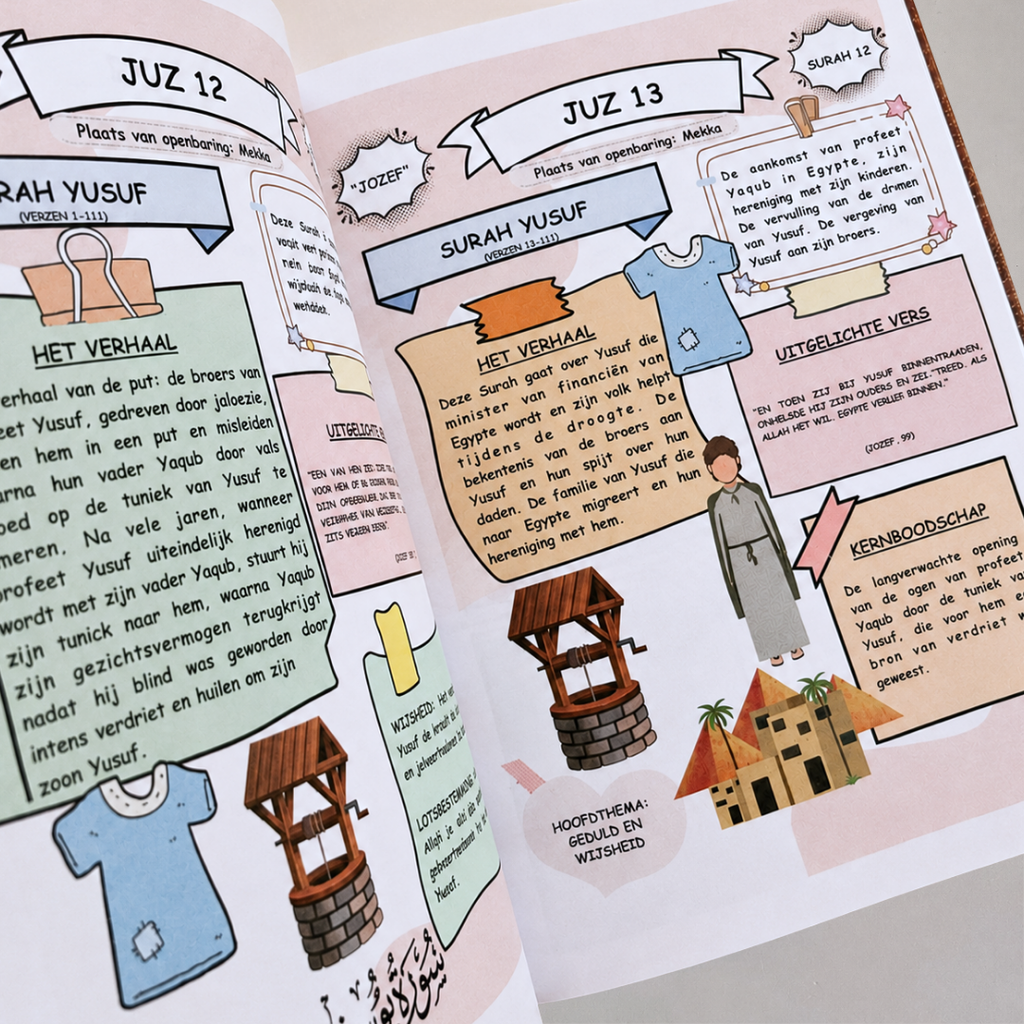 JUZ 12
Plaats van openbaring: Mekka
RAH YUSUF
(VERZEN 1-111)
Deze Surah
HET VERHAAL
erhaal van de put: de broers van
eet Yusuf, gedreven door jaloezie,
en hem in een put en misleiden
arna hun vader Yaqub door vals
oed op de tuniek van Yusuf te
meren. Na vele jaren, wanneer
profeet Yusuf uiteindelijk herenigd
wordt met zijn vader Yaqub, stuurt hij
zijn tunick naar hem, waarna Yaqub
zijn gezichtsvermogen terugkrijgt
nadat hij blind was geworden door
intens verdriet en huilen om zijn
zoon Yusuf.
UITGELICHTE
WIJSHEID: Het
Yusuf de
en
LOTSBESTEMMING
Allah je
سورة
JUZ 13
SURAH 12
Plaats van openbaring: Mekka
"JOZEF"
SURAH YUSUF
(VERZEN 13-111)
De aankomst van profeet
Yaqub in Egypte, zijn
hereniging met zijn kinderen.
De vervulling van de dromen
van Yusuf. De vergeving van
Yusuf aan zijn broers.
HET VERHAAL
Deze Surah gaat over Yusuf die
minister van financiën van
Egypte wordt en zijn volk helpt
tijdens de droogte. De
bekentenis van de broers aan
Yusuf en hun spijt over hun
daden. De familie van Yusuf die
naar Egypte migreert en hun
hereniging met hem.
UITGELICHTE VERS
"EN TOEN ZIJ BIJ YUSUF BINNENTRAADEN,
ONHELSDE HIJ ZIJN OUDERS EN ZEI."TREED. ALS
ALLAH HET WIL. EGYPTE VERLIEF BINNEN."
(JOZEF . 99)
KERNBOODSCHAP
De langverwachte opening
van de ogen van profeet
Yaqub door de tuniek va
Yusuf, die voor hem e
bron van verdriet w
geweest.
HOOFDTHEMA:
GEDULD EN
WIJSHEID